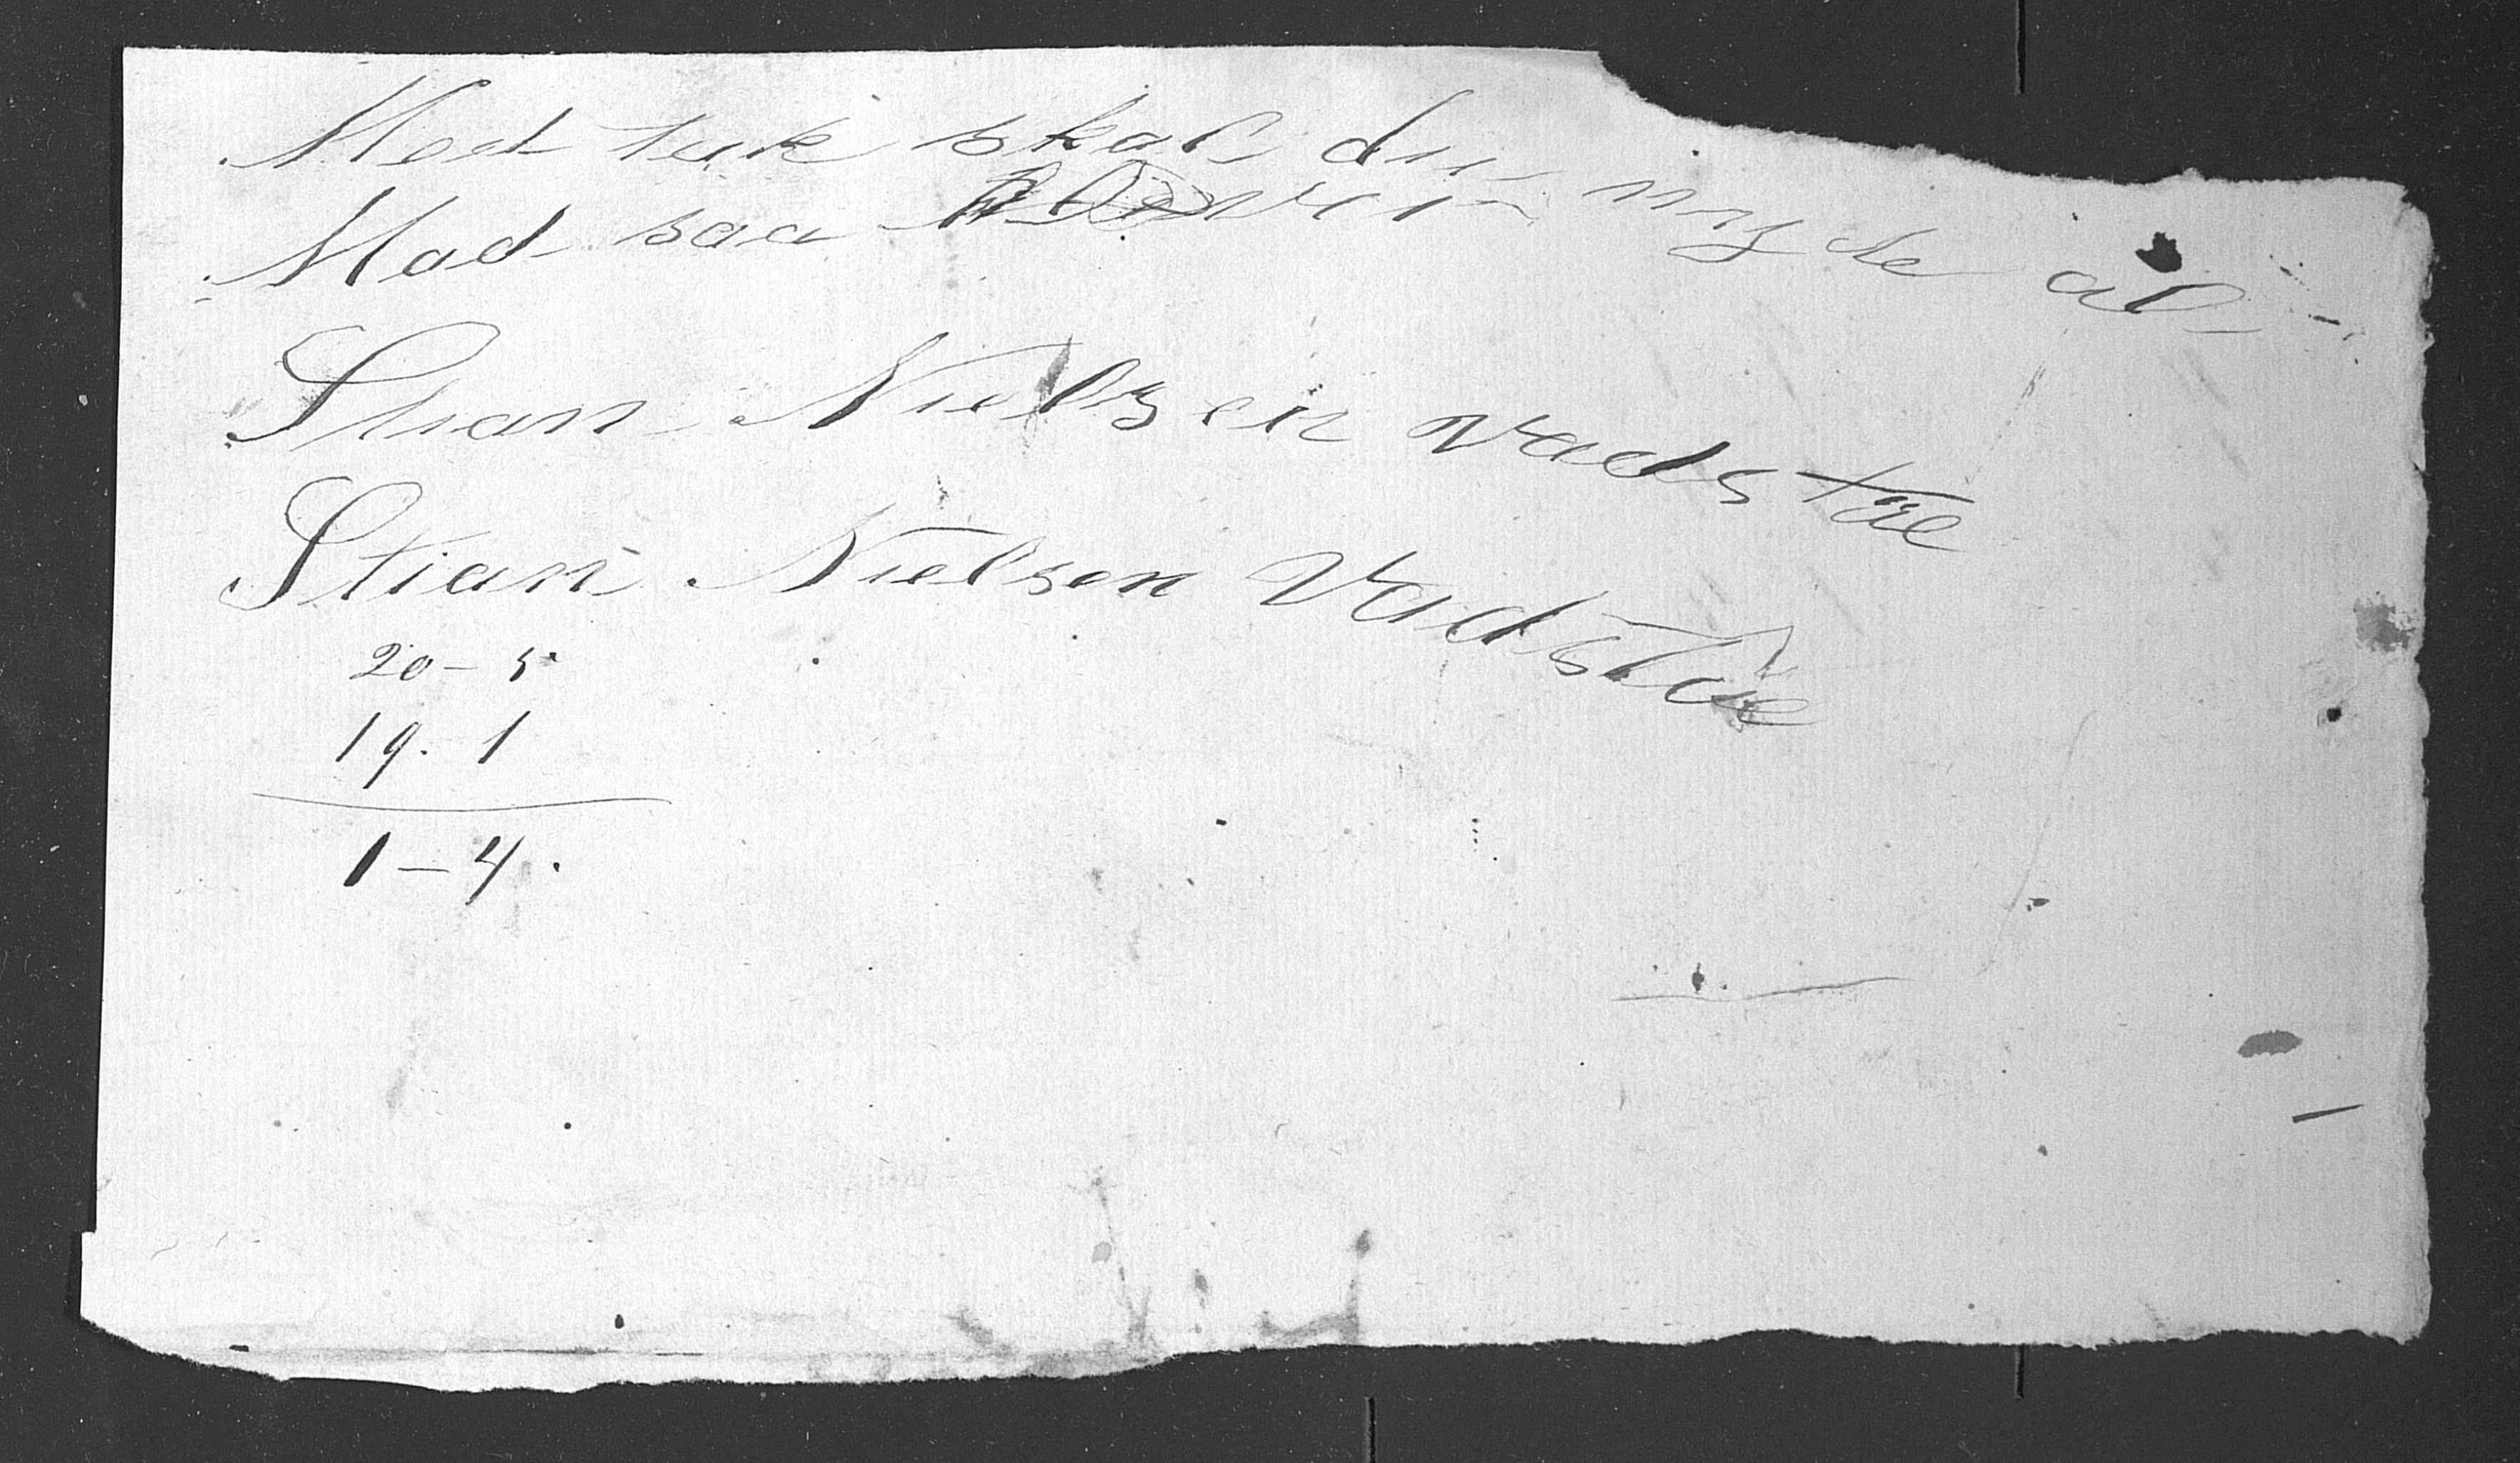 Med tuk skal du nyde al
Mad saa blever
Stian Nielsen Vadstöe
Stian Nielsen Vadstöe
20 – 5
19. 1
1 – 4.